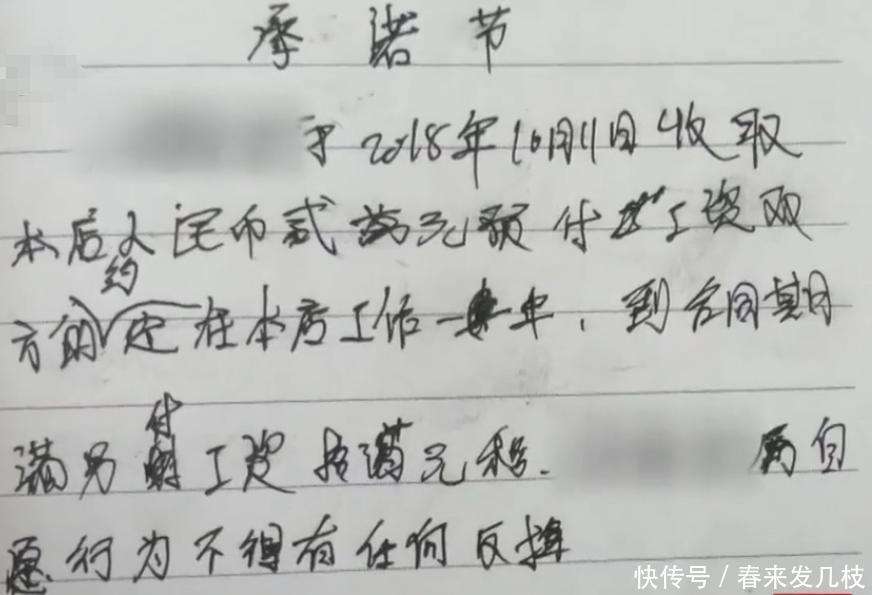 承诺节
于2018年10月11日收取
本店人民币贰萬元预付工资双
方的约定在本店工作一年，到合同期
满另付工资拾萬元整.属自
愿行为不得有任何反悔
快传号/春来发几枝